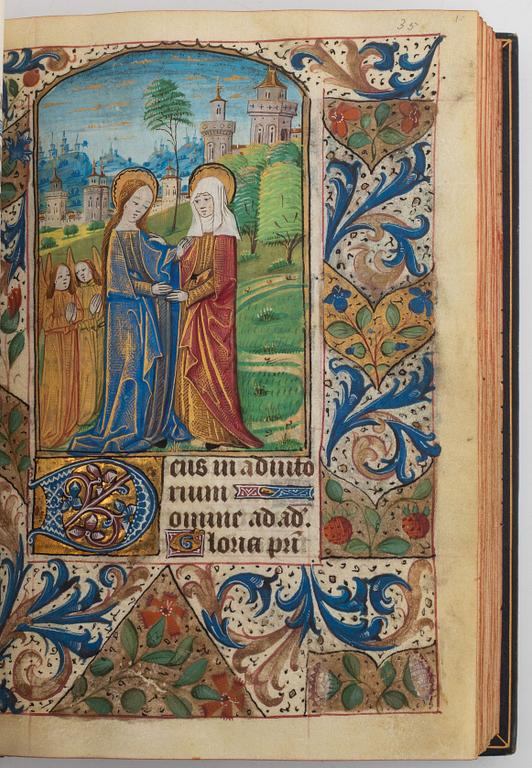 35
Deus in adiuto
rium
Domine ad ad.
Gloria pr̄i